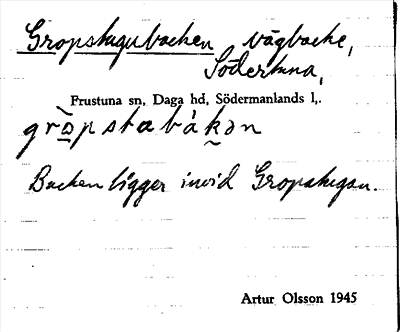 Gropstugubacken vägbacke,
Södertuna,
Frustuna sn, Daga hd, Södermanlands l,.
gròpstabàkən
Backen ligger invid Gropstugan.
Artur Olsson 1945